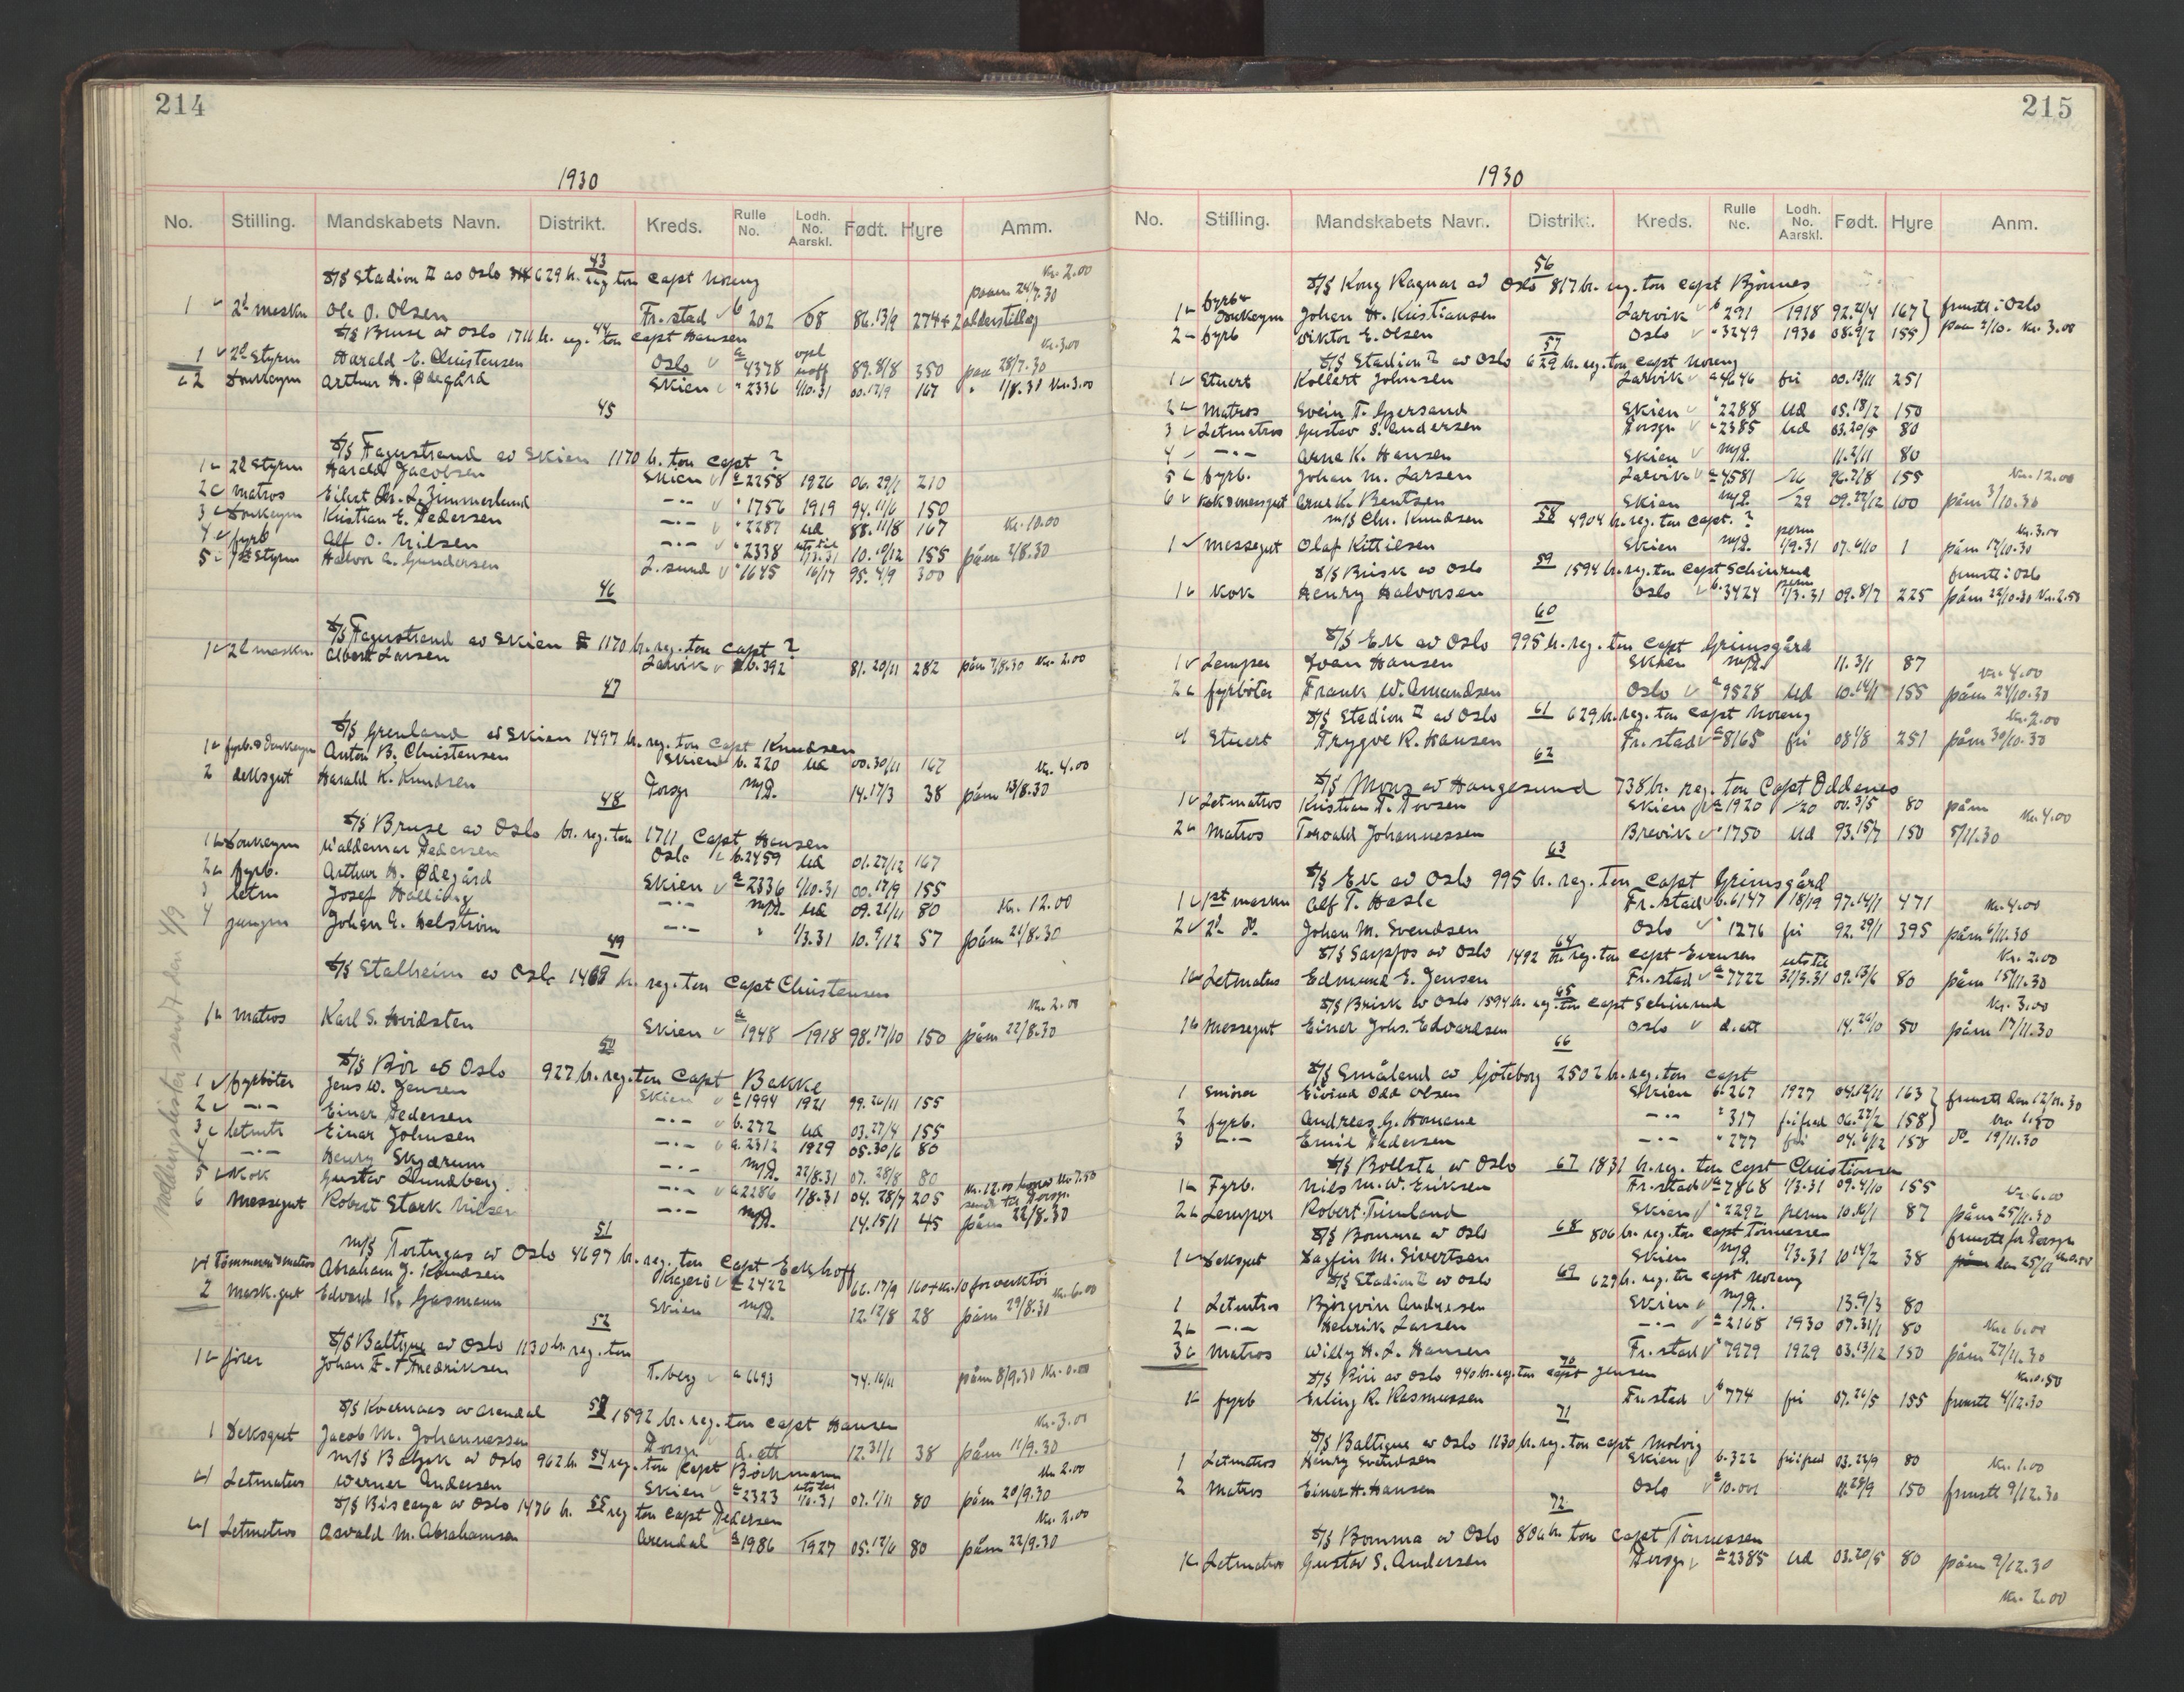 214
1930
No. Stilling. Mandskabets Navn. Distrikt. Kreds. Rulle No. Lodh. No. Aarskl. Født. Hyre Amm.
43
S/S Stadion II av Oslo 629 br. reg ton Capt Noreng Kr. 2.00
1 2d maskn Ole O. Olsen Fr.stad b 202 /08 86.13/9 274+2 alderstillæg paam 24/7.30
44
S/S Bruse av Oslo 1711 br. reg. ton Capt Hansen Kr. 3.00
1 2d Styrm Harald E. Christensen Oslo a 4378 89.8/8 350 paa 28/7.30
2 Donkeym Arthur H. Ødegård Skien " 2336 1/10.31 00.17/9 167 " 1/8.30 Kr. 3.00
45
S/S Fagerstrand av Skien 1170 br. ton Capt ?
1 2d Styrm Harald Jacobsen Skien a 2258 1926 06.29/1 210
2 Matros Eilert Chr. L. Zimmerlund -"- " 1756 1919 94.11/6 150
3 Donkeym Kristian E. Pedersen -"- " 2287 Ud 88.11/8 167 Kr. 10.00
4 fyrb Alf O. Nilsen -"- " 2338 uts til 1/3.31 10.19/12 155 påm 2/8.30
5 1ste Styrm Halvor A. Gundersen L.sund " 1645 16/17 95.4/9 300
46
S/S Fagerstrand av Skien 1170 br. reg. ton Capt ?
1 2d maskn. Albert Larsen Larvik b. 392 81.20/11 282 påm 7/8.30 Kr. 2.00
47
S/S Grenland av Skien 1497 br. reg. ton Capt Knudsen
1 fyrb. & Donkeym Anton B. Christensen Skien b. 220 Ud 00.30/11 167 Kr. 4.00
2 deksgut Harald K. Knudsen Porsgr m/R. 14.17/3 38 påm 13/8.30
48
S/S Bruse av Oslo br. reg. ton 1711 Capt Hansen
1 Donkeym Valdemar Pedersen Oslo b. 2459 Ud 01.27/12 167
2 fyrb. Arthur H. Ødegård Skien a 2336 1/10.31 00.17/9 155
3 letm Josef Halling -"- m/R. Ud 09.21/11 80 Kr. 12.00
4 jungm Johan A. Helström -"- " 1/3.31 10.9/12 57 påm 21/8.30
49
S/S Stalheim av Oslo 1469 br. reg. ton Capt Christensen Kr. 2.00
1 Matros Karl S. Hvidsten Skien a 1948 /1918 98.17/10 150 påm 22/8.30
50
S/S Bür av Oslo 927 br. reg. ton Capt Bakke
1 fyrböter Jens W. Jensen Skien a 1994 1921 99.26/11 155
2 -"- Einar Pedersen -"- b. 272 Ud 03.27/4 155
3 letmtr Einar Johnsen -"- a. 2312 1929 05.30/6 80
4 -"- Henry Skjærum -"- m/R. 22/8.31 07.28/8 80
5 Kok Gustav Lundberg -"- a 2286 1/8.31 04.28/7 205 Kr. 12.00 hvorav Kr 7.50
6 Messegut Robert Stark Nilsen -"- m/R. 14.15/1 45 sendt til Porsgr. påm 22/8.30
51
M/S Tortugas av Oslo 4697 br. reg. ton Capt Eckhoff
1 Tömmerm & matros Abraham J. Knudsen Kragerö a 2422 66.17/9 160+Kr.10 for verktöi
2 Mask.gut Edvard K. Gasmann Skien m/R. 12.12/8 28 påm 29/8.30 Kr. 6.00
52
S/S Baltique av Oslo 1130 br. reg. ton
1 fører Johan F. Fredriksen T.berg a 6693 74.16/11 påm 8/9.30 Kr. 0.00
53
S/S Kvernaas av Arendal 1592 br. reg. ton Capt Hansen Kr. 3.00
1 Deksgut Jacob M. Johannessen Porsgr d. att 12.31/1 38 påm 11/9.30
54
M/S Balzak av Oslo 962 br. reg. ton Capt Bockmann Kr. 2.00
1 Letmatros Werner Andersen Skien a 2323 uts til 1/6.31 07.1/11 80 påm 20/9.30
55
S/S Biscaya av Oslo 1476 br. reg ton Capt Pedersen Kr. 2.00
1 Letmatros Asvald M. Abrahamsen Arendal a 1986 /1927 05.12/6 80 påm 22/9.30
Mellingslister sendt den 4/9
215
1930
No. Stilling. Mandskabets Navn. Distrikt. Kreds. Rulle No. Lodh. No. Aarskl. Født. Hyre Anm.
56
S/S Kong Ragnar av Oslo 817 br. reg. ton Capt Bjönnes
1 fyrb & Donkeym Johan H. Kristiansen Larvik b 291 1918 92.21/4 167 frmstt i Oslo
2 fyrb Viktor E. Olsen Oslo " 3249 1930 08.9/2 155 paa 2/10. Kr. 3.00
57
S/S Stadion II av Oslo 629 br. reg. ton Capt Noreng
1 Stuert Kollert Johnsen Larvik a 4646 fri 00.13/11 251
2 Matros Svein T. Gjersund Skien " 2288 Ud 05.18/2 150
3 Letmatros Gustav S. Andersen Porsgr " 2385 Ud 03.20/5 80
4 -"- Arne K. Hansen Skien m/R. 11.2/11 80
5 fyrb. Johan M. Larsen Larvik a 4581 /16 96.2/8 155 Kr. 12.00
6 Kok & messgut Arne K. Bentsen Skien m/R. /29 09.22/12 100 påm 3/10.30
58
M/S Chr. Knudsen 4904 br. reg. ton Capt. ? Kr. 3.00
1 Messegut Olaf Kittilsen Skien m/R. perm 1/9.31 07.6/10 1 påm 17/10.30
59
S/S Brisk av Oslo 1594 br. reg. ton Capt Schinrud frmstt i Oslo
1 Kok Henry Halvorsen Oslo b. 3424 perm 1/3.31 09.8/7 225 påm 22/10.30 Kr. 2.50
60
S/S Ek av Oslo 995 br. reg. ton Capt Grimsgård
1 Lemper Ivar Hansen Skien m/R. 11.3/1 87 Kr. 4.00
2 fyrböter Frank W. Amundsen Oslo a 9528 Ud 10.14/1 155 påm 24/10.30
61
S/S Stadion II av Oslo 629 br. reg. ton Capt Noreng Kr. 2.00
1 Stuert Trygve R. Hansen Fr.stad a 8165 fri 08.1/8 251 påm 30/10.30
62
S/S Mons av Haugesund 738 br. reg. ton Capt Oddenes
1 Letmatros Kristian T. Tovsen Skien a 1920 /20 00.3/5 80 påm Kr. 4.00
2 Matros Torvald Johannessen Brevik " 1750 Ud 93.15/7 150 5/11.30
63
S/S Ek av Oslo 995 br. reg. ton Capt Grimsgård
1 1st maskn Alf T. Hasle Fr.stad b. 6147 18/19 97.14/1 471 Kr. 4.00
2 2d do Johan M. Svendsen Oslo " 1276 fri 92.29/1 395 påm 6/11.30
64
S/S Sarpfos av Oslo 1492 br. reg. ton Capt Evensen Kr. 2.00
1 Letmatros Edmund E. Jensen Fr.stad a 7722 utstil 31/3.31 09.13/6 80 påm 15/11.30
65
S/S Brisk av Oslo 1594 br. reg. ton Capt Schinrud Kr. 3.00
1 Messegut Einar Johs. Edvardsen Oslo d. att 14.26/10 50 påm 17/11.30
66
S/S Småland av Göteborg 2502 br. reg. ton Capt
1 Smörer Eivind Odd Olsen Skien b. 267 1927 04.12/11 163 frmstt den 12/11.30
2 fyrb. Andreas G. Homane -"- " 317 fri fred 06.27/2 158 Kr. 1.50
3 -"- Emil Pedersen -"- " 277 fri 04.6/12 158 do 19/11.30
67
S/S Bollsta av Oslo 1831 br. reg. ton Capt Christiansen
1 Fyrb. Nils M. W. Eriksen Fr.stad a 7868 1/3.31 09.4/10 155 Kr. 6.00
2 Lemper Robert Timland Skien " 2292 perm 10.10/1 87 påm 25/11.30
68
S/S Bomma av Oslo 806 br. reg. ton Capt Tönnessen frmstt for Porsgr
1 Deksgut Dagfin M. Sivertsen Skien m/R. 1/3.31 10.14/2 38 den 25/11 Kr. 0.50
69
S/S Stadion II av Oslo 629 br. reg. ton Capt Noreng
1 Letmtros Björgvin Andresen Skien m/R. 13.9/3 80
2 -"- Henrik Larsen -"- a 2168 1930 07.31/1 80 Kr. 6.00
3 Matros Willy H. L. Hansen Fr.stad " 7979 1929 03.13/12 150 påm 27/11.30
70
S/S Biri av Oslo 940 br. reg. ton Capt Jensen Kr. 0.50
1 fyrb Erling R. Rasmussen Fr.stad b 774 fri 07.26/5 155 frmstt 4/12.30
71
S/S Baltique av Oslo 1130 br. reg. ton Capt Molvig
1 Letmatros Henry Svendsen Skien b. 322 fri i fred 03.22/9 80 Kr. 1.00
2 Matros Einar H. Hansen Oslo a 10.001 11.28/9 150 frmstt 9/12.30
72
S/S Bomma av Oslo 806 br. ton Capt Tönnessen
1 Letmatros Gustav S. Andersen Porsgr a 2385 Ud 03.20/5 80 påm 9/12.30
Kr. 2.00